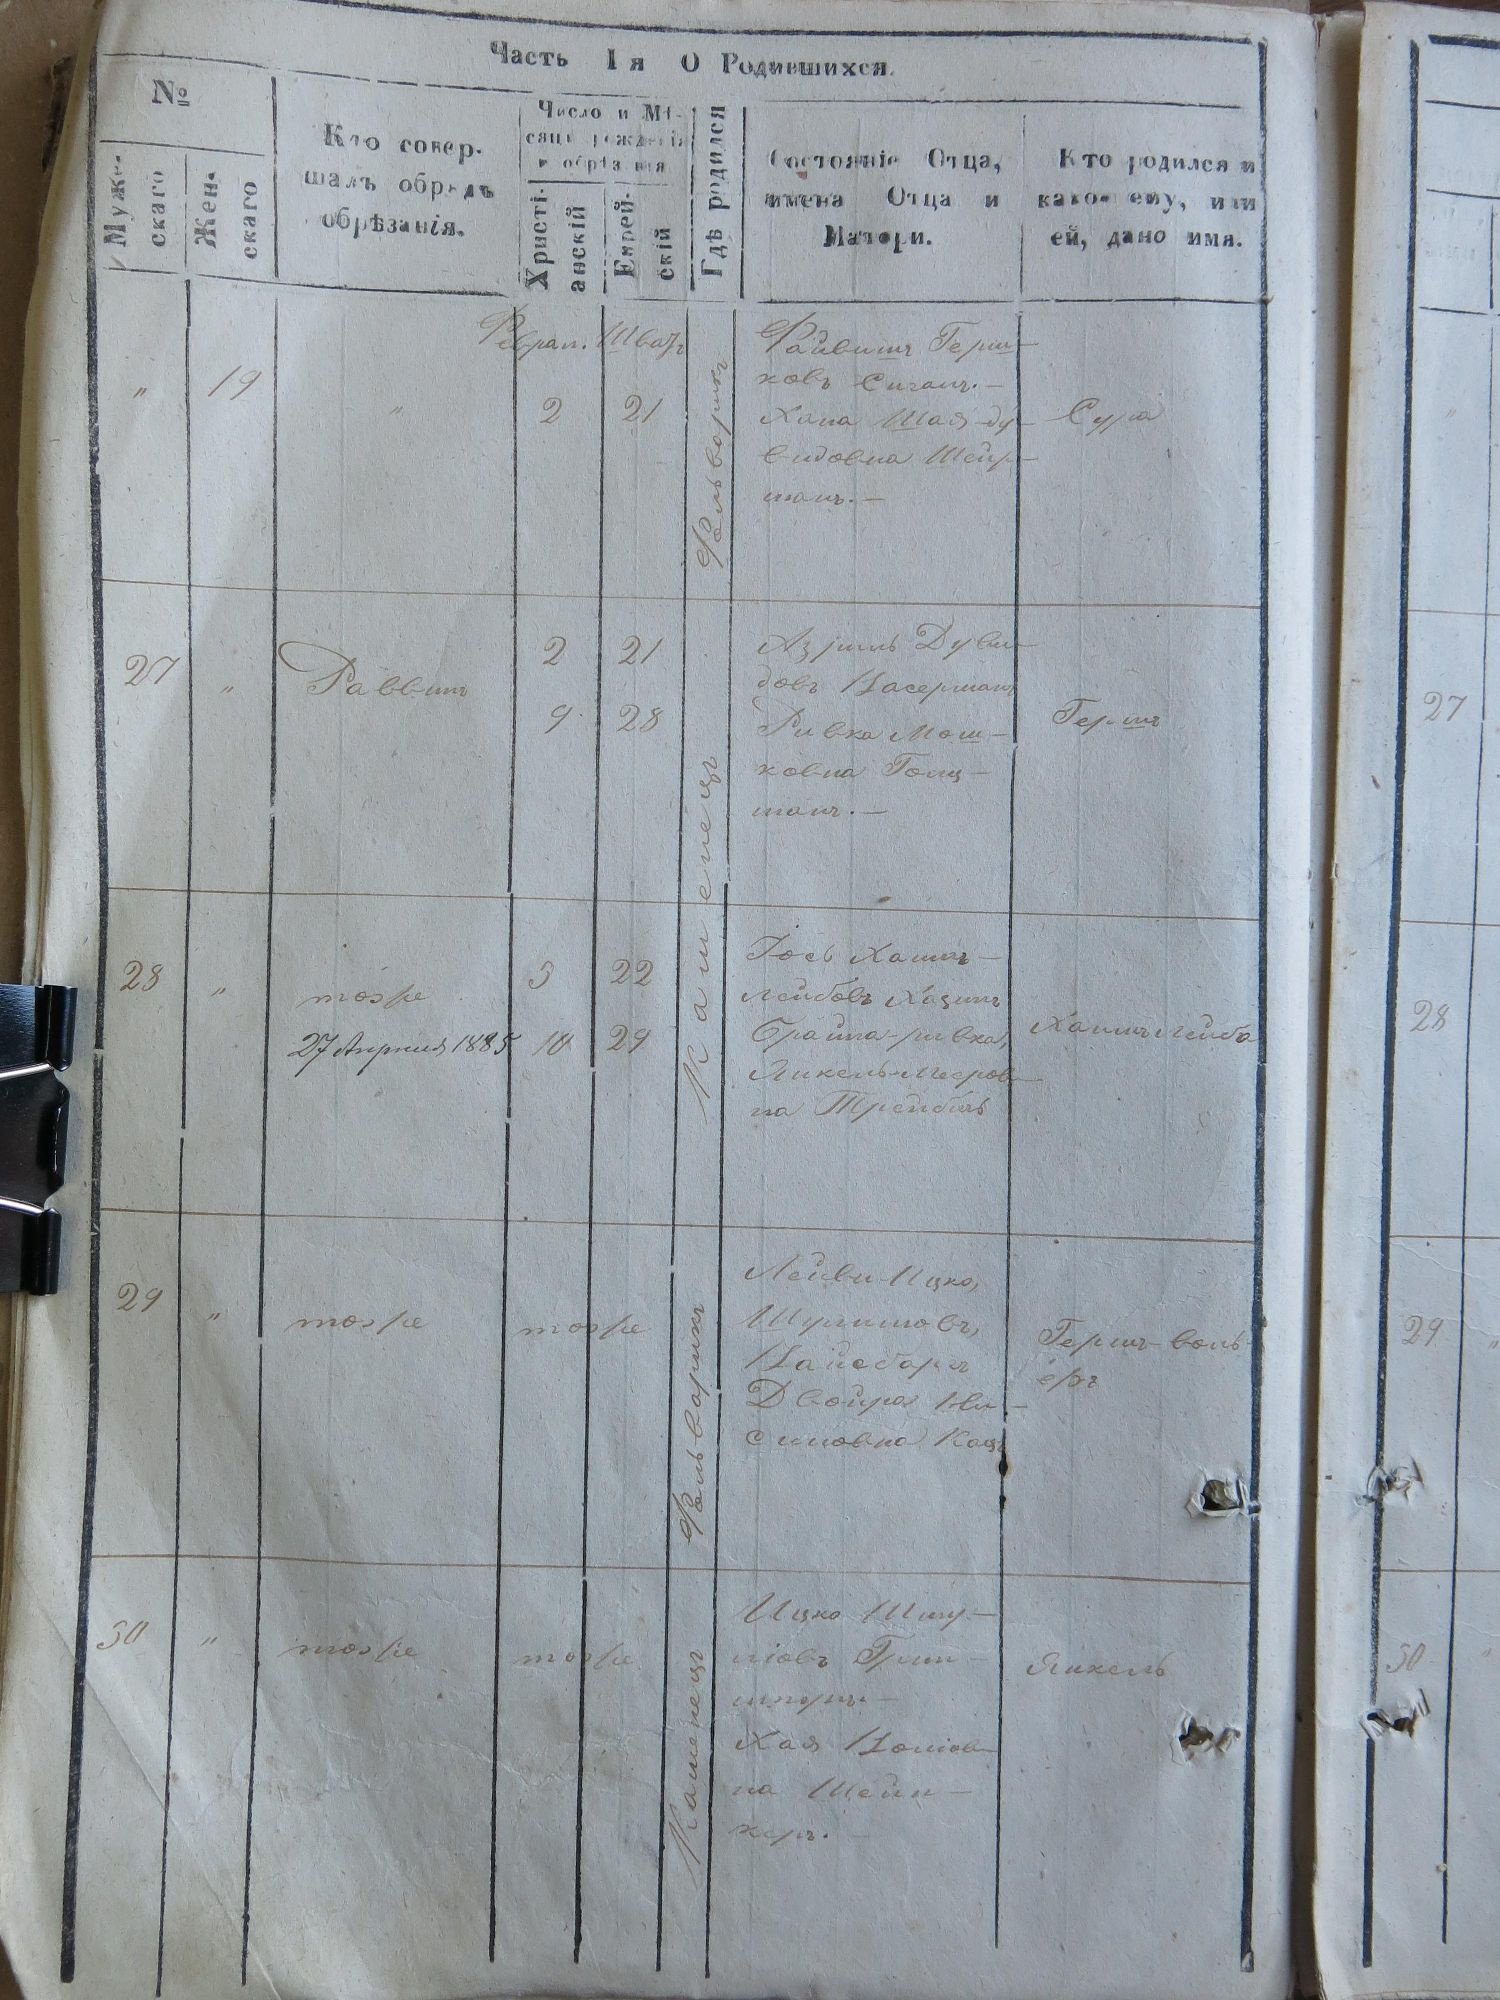 Часть Iя О Родившихся.
№
Муже-
скаго
Жен-
скаго
Кто совер-
шалъ обрядъ
обрѣзанія.
Число и Мѣ-
сяцъ рожденія
и обрѣзанія
Христі-
анскій
Еврей-
скій
Гдѣ родился
Состояніе Отца,
имена Отца и
Матери.
Кто родился и
какое ему, или
ей, дано имя.
Феврал. Шватъ
" 19 " 2 21
Фольваркъ
Файвишъ Герш-
ковъ
Хана Шая-ду-
видовна Шейр-
манъ.-
Сура
27 " Раввинъ
2 21
9 28
Каменецъ
Азриль Дуви-
довъ Васерманъ
Ривка Мош-
ковна Голц-
манъ.-
Гершъ
28 " тоже
27 Апреля 1885
3 22
10 29
Іось Хаимъ-
Лейбовъ Хацинъ
Брайна-ривка,
Янкель-Меэров-
на
Хаимъ Лейба
29 " тоже тоже
Фольваркъ
Лейви-Ицко,
Шулимовъ,
Вайсбергъ
Двойра
Кацъ
Гершъ-воль-
еръ
30 " тоже тоже
Каменецъ
Ицко Шму-
ліовъ Грин-
шпонъ.-
Хая Воліов-
на Шейн-
керъ.-
Янкель
27
28
29
30